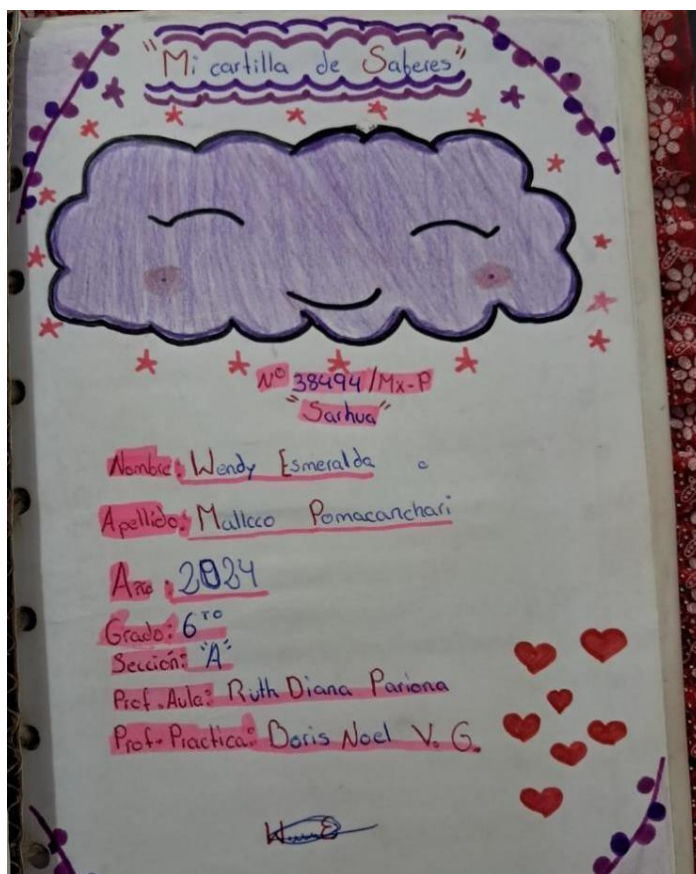 "Mi cartilla de Saberes"
N° 38494/Mx-P
"Sarhua"
Nombre: Wendy Esmeralda
Apellido: Mallcco Pomacanchari
Año: 2024
Grado: 6ro
Sección: "A"
Prof. Aula: Ruth Diana Pariona
Prof. Practica: Boris Noel V. G.